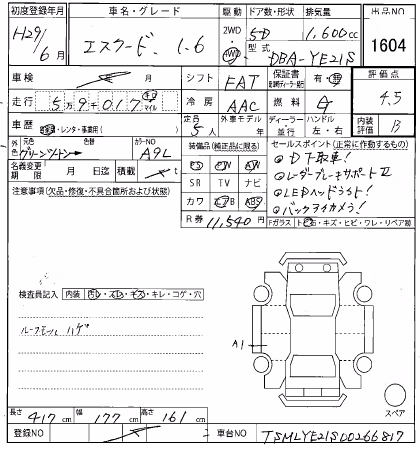 初度登録年月
車名・グレード
駆動
ドア数・形状
排気量
出品NO
H29/6月
エスクード 1.6
2WD
4WD
5D
1,600cc
型式
DBA-YE21S
1604
車検
年 月
シフト
FAT
保証書
有・無
評価点
4.5
走行
5万9千017
キロ
マイル
冷房
AAC
燃料
ガ
車歴
自家用・レンタ・事業用
定員
5人
外車モデル
年
ディーラー
並行
ハンドル
左・右
内装評価
B
外色
元色
グリーンツートン
色替
カラーNO
A9L
装備品(純正品に限る)
セールスポイント(正常に作動するもの)
PS
PW
AW
DT取車!
名義変更期限
月 日迄
積載
t
SR
TV
ナビ
レーダーブレーキサポートⅡ
注意事項(欠品・修復・不具合箇所および状態)
カワ
エアB
ABS
LEDヘッドライト!
R券
11,540円
バックアイカメラ!
Fガラス
トビ石・キズ・ヒビ・ワレ・リペア跡
検査員記入
内装
汚レ・スレ・キズ・キレ・コゲ・穴
ルーフモール ハゲ
A1
スペア
長さ
417cm
幅
177cm
高さ
161cm
登録NO
車台NO
TSMLYE21S00266817